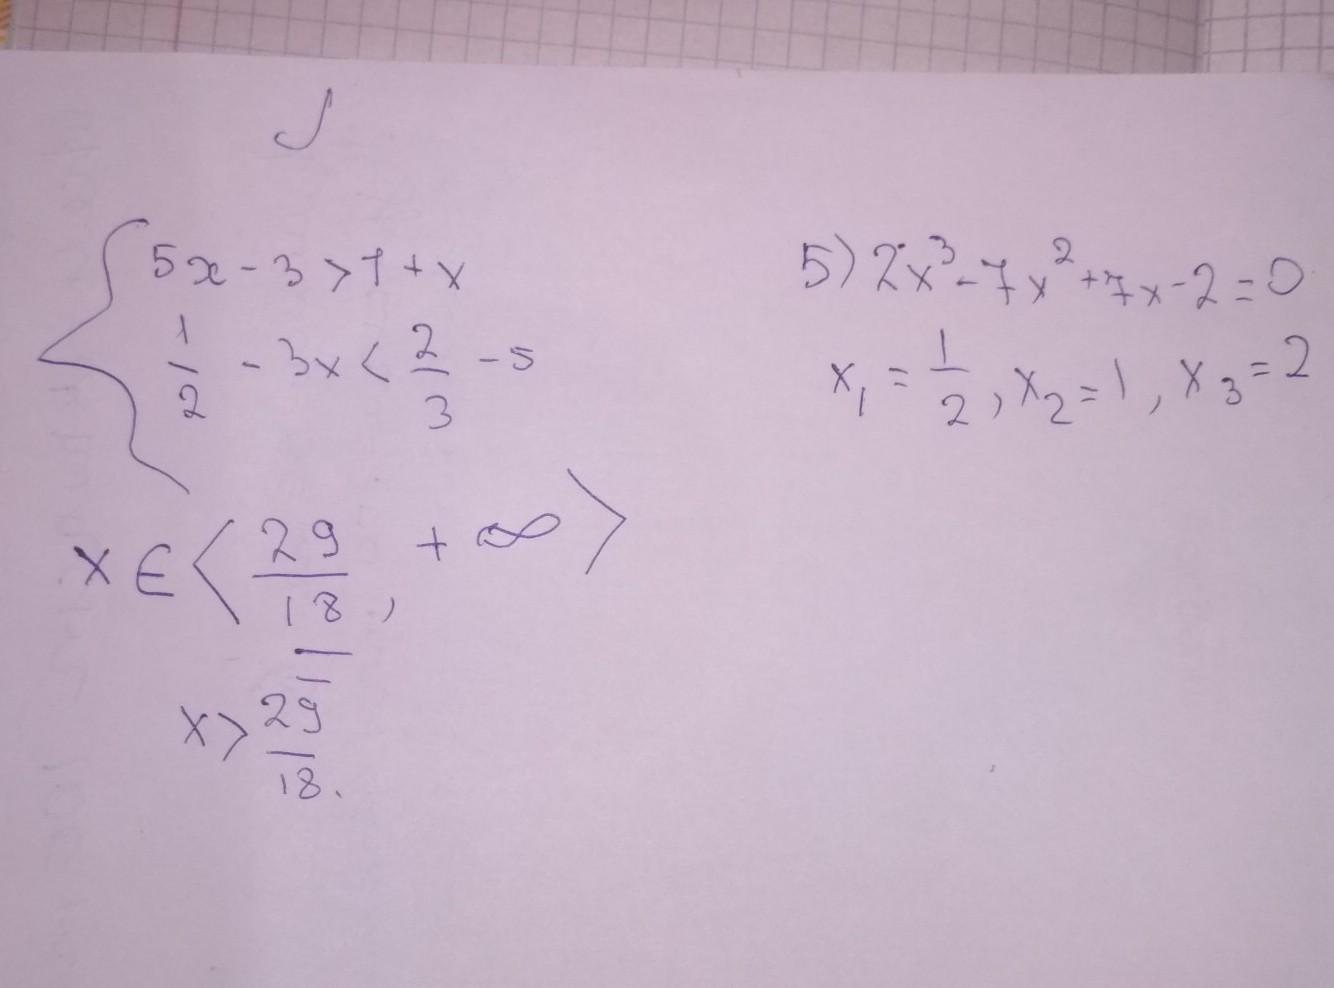 5x - 3 > 1 + x
1/2 - 3x < 2/3 - 5
x ∈ < 29/18, + ∞ >
x > 29/18.
5) 2x³ - 7x² + 7x - 2 = 0
x₁ = 1/2, x₂ = 1, x₃ = 2